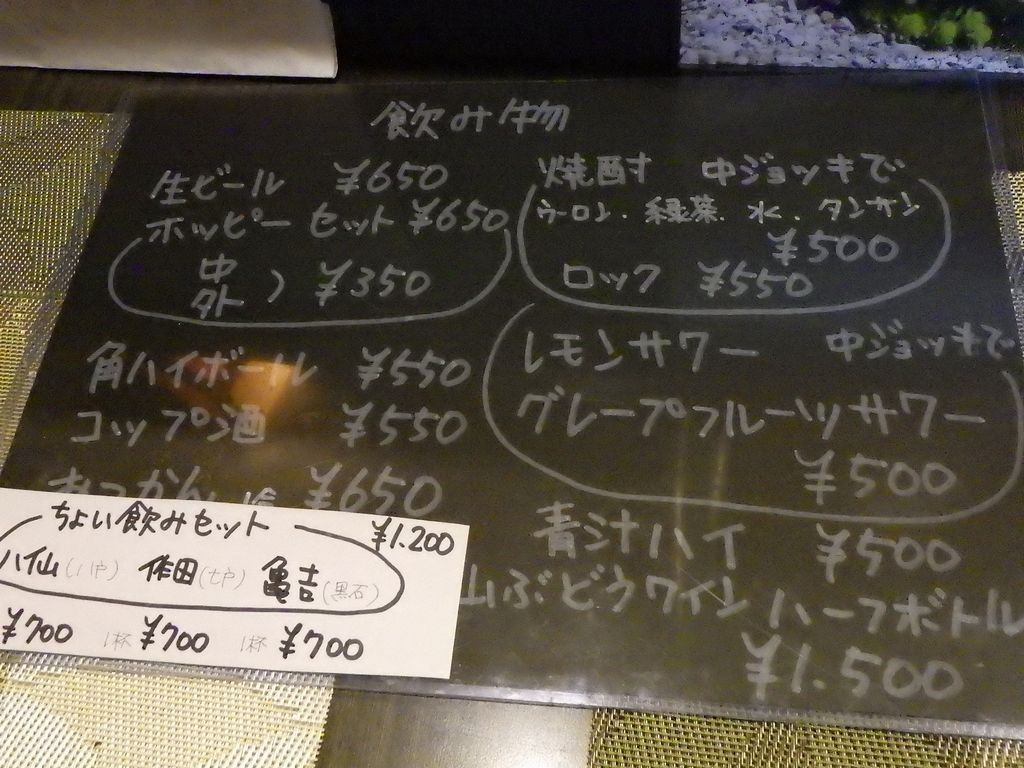 飲み物
生ビール ¥650
ホッピーセット ¥650
中
外 ) ¥350
角ハイボール ¥550
コップ酒 ¥550
¥650
焼酎 中ジョッキで
ウーロン・緑茶・水・タンサン
¥500
ロック ¥550
レモンサワー 中ジョッキで
グレープフルーツサワー
¥500
青汁ハイ ¥500
山ぶどうワイン ハーフボトル
¥1.500
ちょい飲みセット ¥1.200
八仙(八戸) 作田(七戸) 亀吉(黒石)
¥700 1杯 ¥700 1杯 ¥700